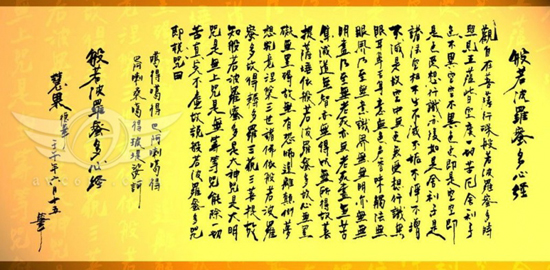 般若波羅蜜多心經
觀自在菩薩行深般若波羅蜜多時
照見五蘊皆空度一切苦厄舍利子
色不異空空不異色色即是空空即
是色受想行識亦復如是舍利子是
諸法空相不生不滅不垢不淨不增
不減是故空中無色無受想行識無
眼耳鼻舌身意無色聲香味觸法無
眼界乃至無意識界無無明亦無無
明盡乃至無老死亦無老死盡無苦
集滅道無智亦無得以無所得故菩
提薩埵依般若波羅蜜多故心無罣
礙無罣礙故無有恐怖遠離顛倒夢
想究竟涅槃三世諸佛依般若波羅
蜜多故得阿耨多羅三藐三菩提故
知般若波羅蜜多是大神咒是大明
咒是無上咒是無等等咒能除一切
苦真實不虛故說般若波羅蜜多咒
即說咒曰
般若波羅蜜多心經
十五